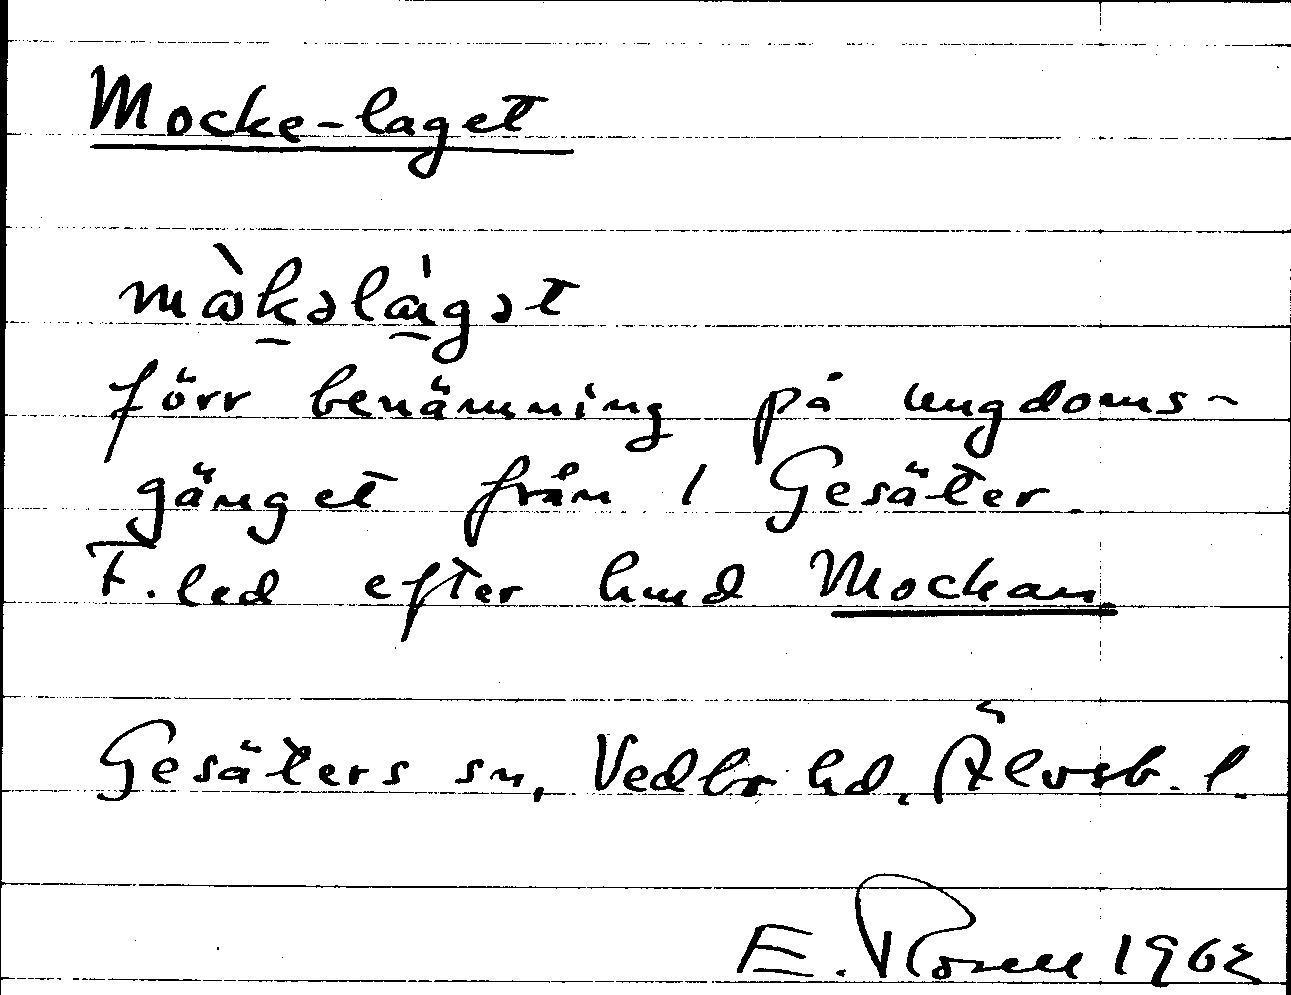 Mocke-laget
mɷ̀kəlágət
förr benämning på ungdoms-
gänget från 1 Gesäter.
F. led efter hund Mockan
Gesäters sn, Vedbo hd, Älvsb. l.
E. Rosell 1962